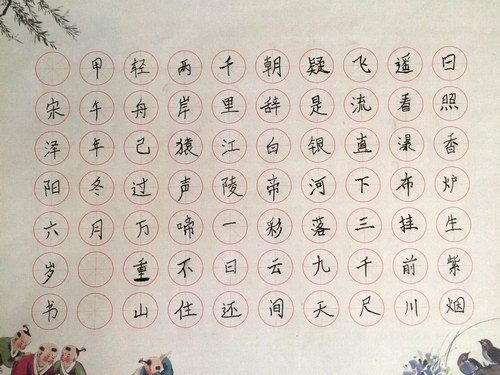 日照香炉生紫烟
遥看瀑布挂前川
飞流直下三千尺
疑是银河落九天
朝辞白帝彩云间
千里江陵一日还
两岸猿声啼不住
轻舟已过万重山
甲午年冬月
宋泽阳六岁书